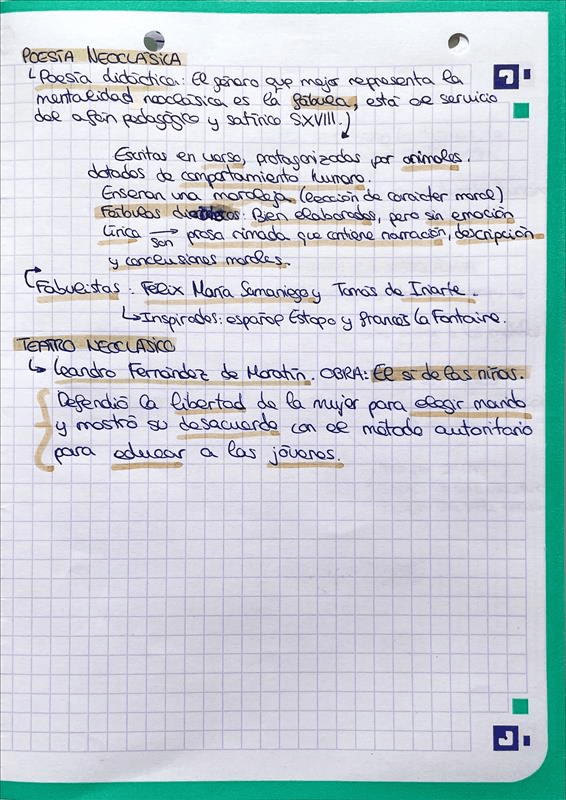 POESÍA NEOCLÁSICA
↳ Poesía didáctica: El género que mejor representa la
mentalidad neoclásica es la fábula, está al servicio
del afán pedagógico y satírico S.XVIII.
Escritas en verso, protagonizadas por animales.
dotados de comportamiento humano.
Enseñan una moraleja (lección de carácter moral)
Fábulas: Bien elaboradas, pero sin emoción
Lírica → son prosa rimada que contiene narración, descripción
y conclusiones morales.
Fabulistas: Félix María Samaniego y Tomás de Iriarte.
↳ Inspirados: español Estopo y francés La Fontaine.
TEATRO NEOCLÁSICO
↳ Leandro Fernández de Moratín. OBRA: El sí de las niñas.
Defendió la libertad de la mujer para elegir marido
y mostró su desacuerdo con el método autoritario
para educar a las jóvenes.